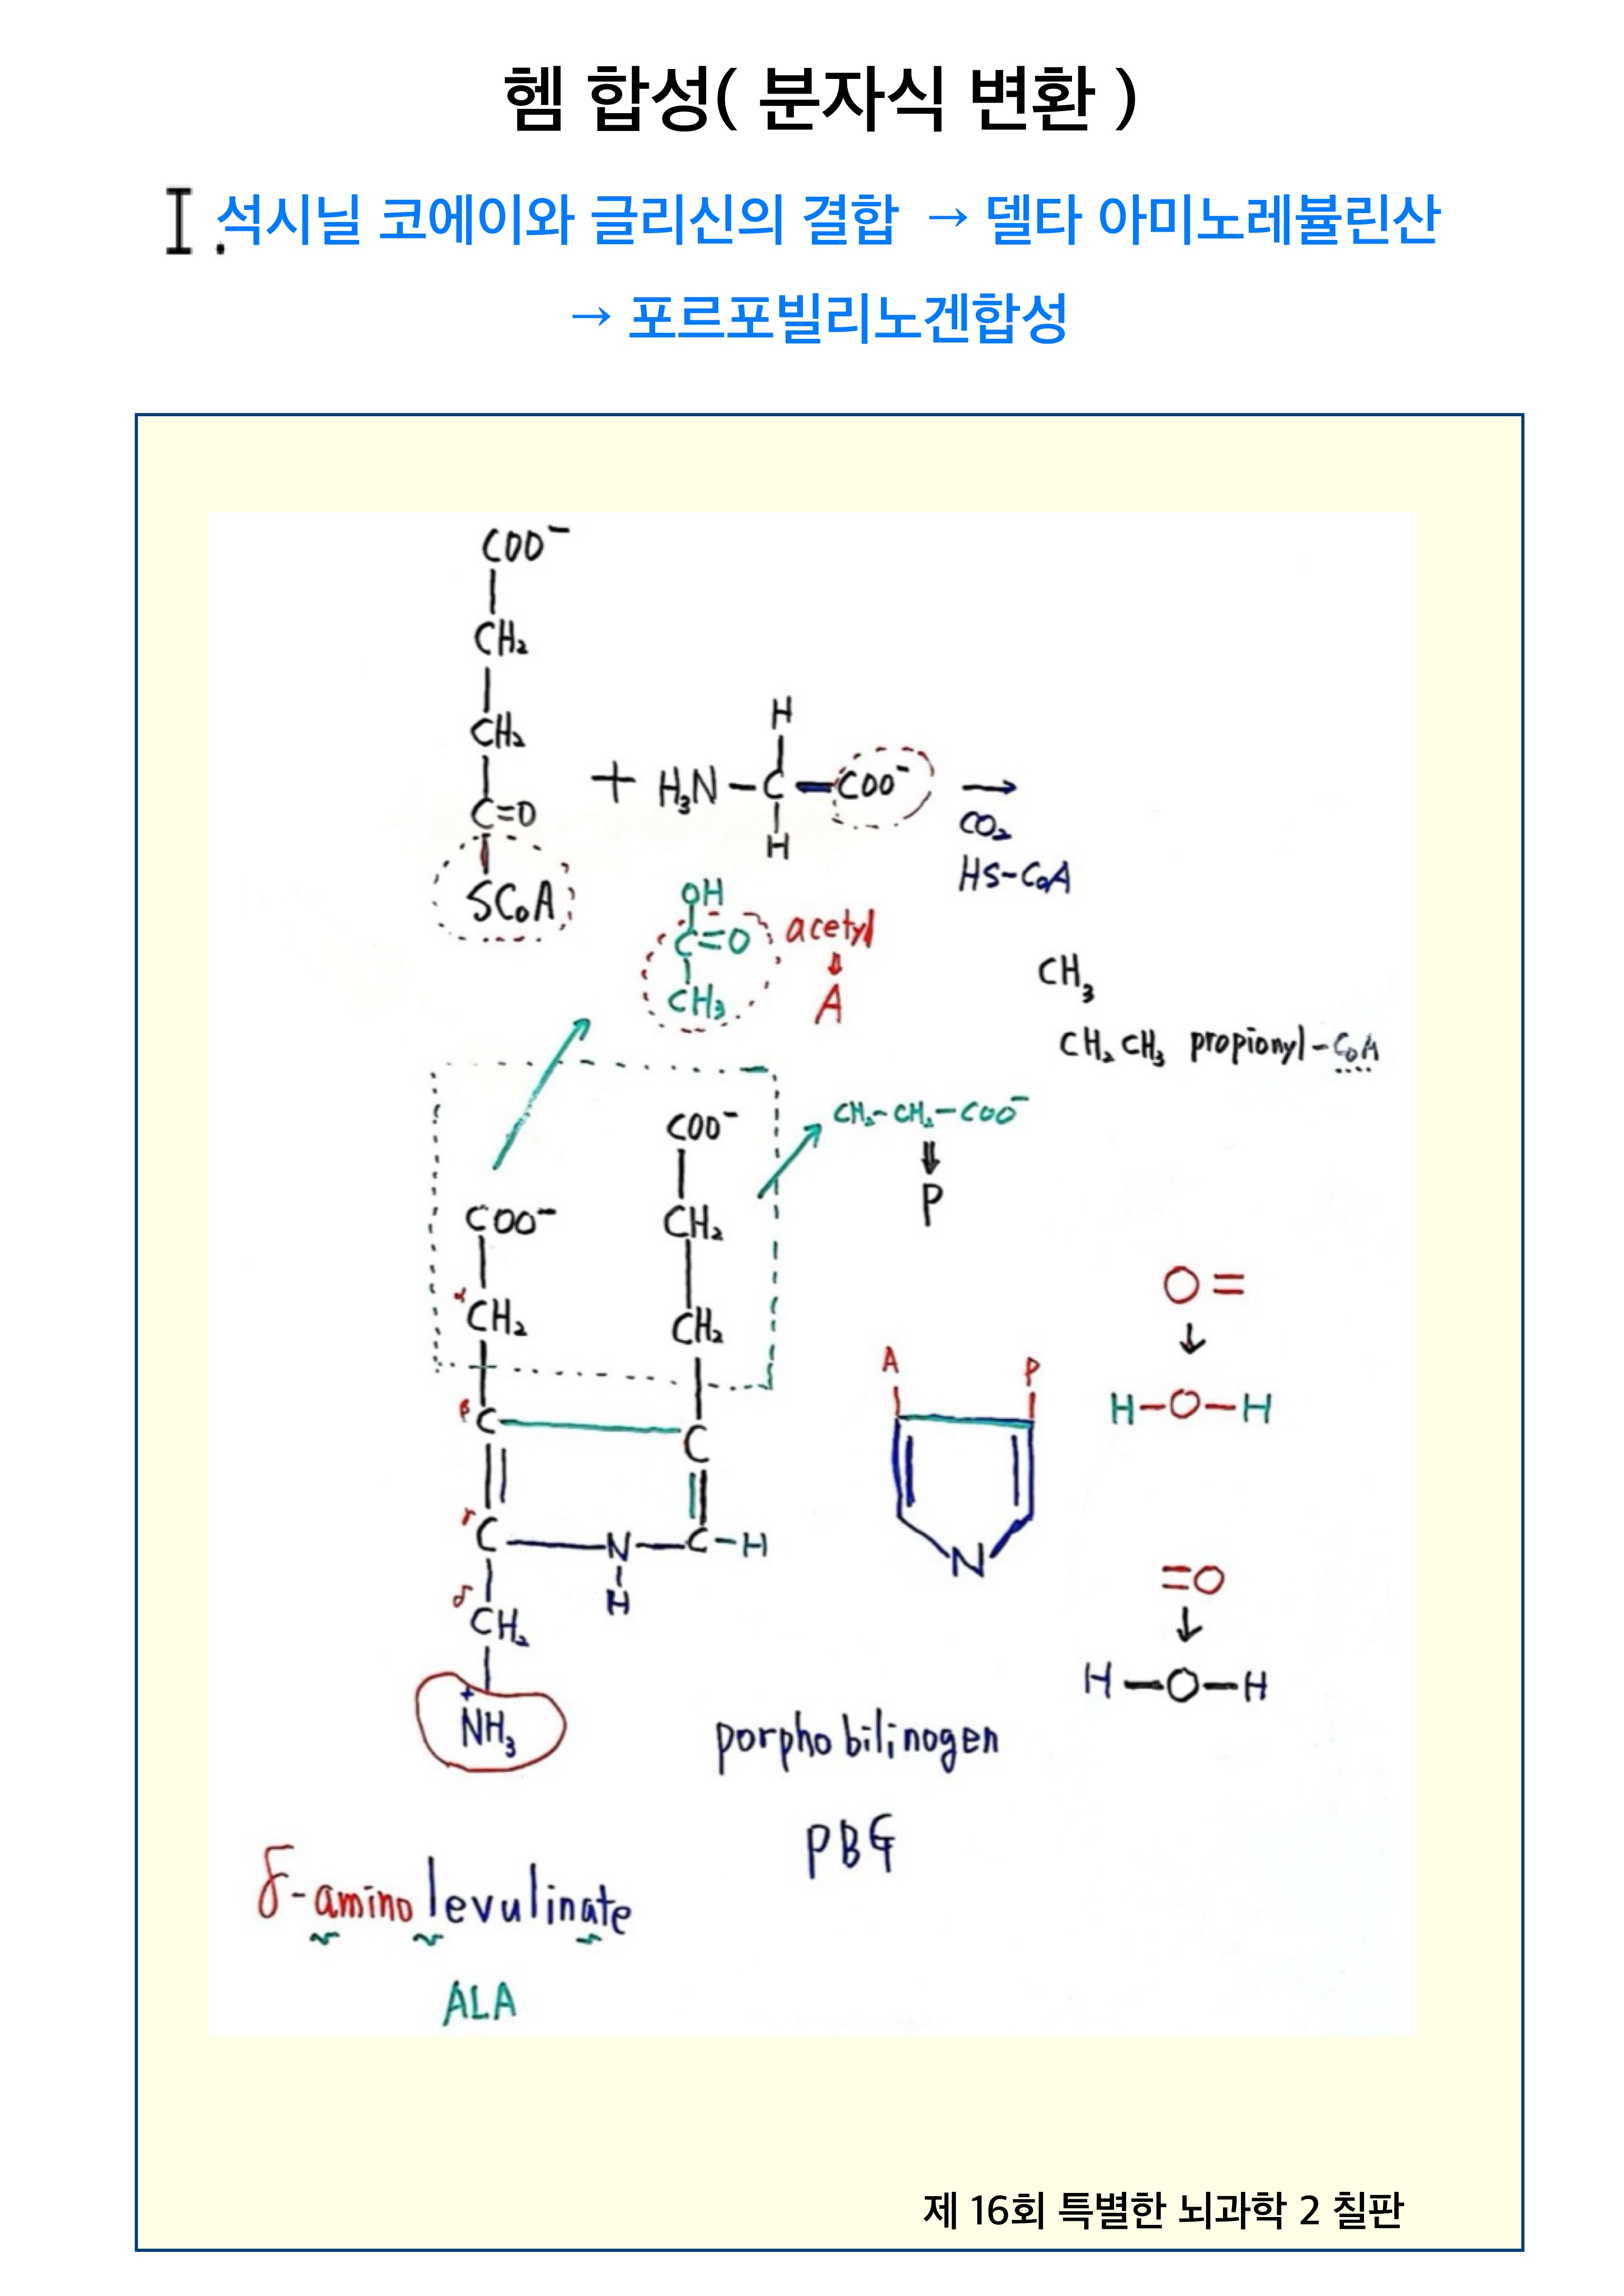 헴 합성( 분자식 변환 )
I. 석시닐 코에이와 글리신의 결합 → 델타 아미노레뷸린산
→ 포르포빌리노겐합성
COO⁻
CH₂
CH₂
C=O
SCoA
+ H₃N-C-COO⁻ →
H
H
CO₂
HS-CoA
OH
C=O
CH₃
acetyl
A
CH₃
CH₂CH₃ propionyl-CoA
COO⁻
CH₂
CH₂
CH₂-CH₂-COO⁻
P
COO⁻
α CH₂
β C
C
γ C
N
C-H
H
δ CH₂
⁺NH₃
A P
N
O=
H-O-H
=O
H-O-H
porphobilinogen
PBG
δ-aminolevulinate
ALA
제 16회 특별한 뇌과학 2 칠판